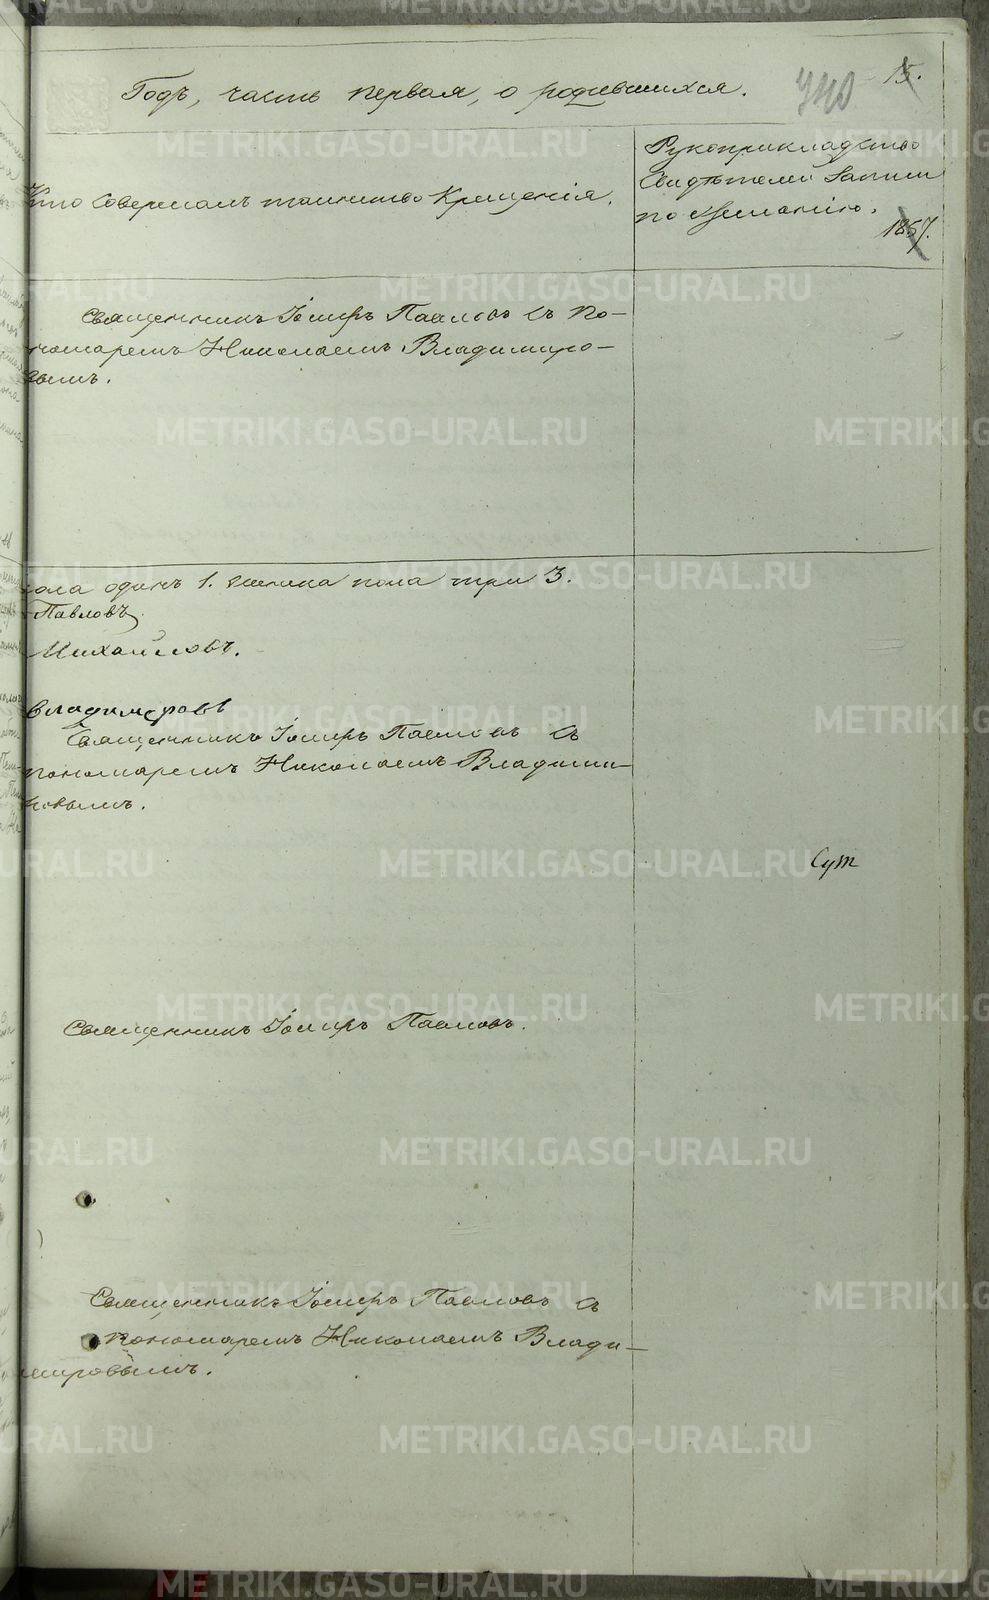 Годъ, часть первая, о родившихся.
740
15.
Кто совершалъ таинство Крещенія.
Рукоприкладство
Свидѣтелей записи
по желанію.
1857.
Священникъ Іоииръ Павловъ съ по-
номаремъ Николаемъ Владимиро-
вымъ.
пола одинъ 1. женска пола три 3.
Павловъ
Михайловъ.
Владимеровъ
Священникъ Іоииръ Павловъ съ
пономаремъ Николаемъ Владими-
ровымъ.
Сут
Священникъ Іоииръ Павловъ.
Священникъ Іоииръ Павловъ съ
пономаремъ Николаемъ Влади-
мировымъ.
METRIKI.GASO-URAL.RU